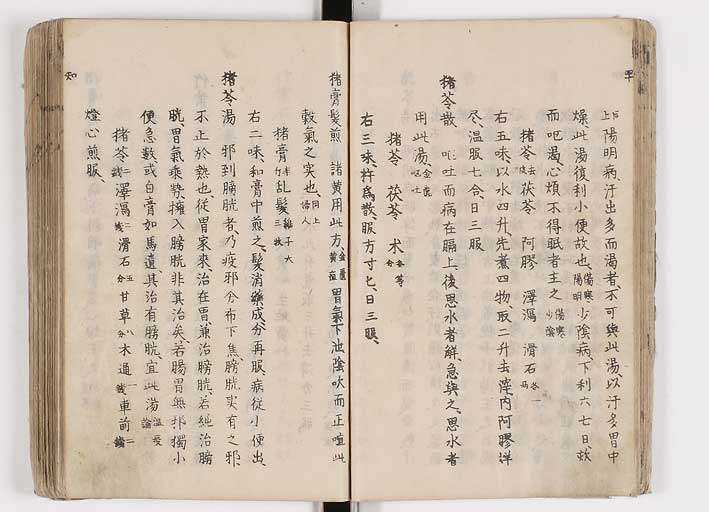 陽明病、汗出多而渴者、不可與此湯、以汗多胃中
燥、此湯復利小便故也、傷寒陽明少陰病、下利六七日、咳
而嘔渴、心煩不得眠者主之、傷寒少陰
猪苓去皮茯苓 阿膠 澤瀉 滑石各一
右五味、以水四升、先煮四物、取二升、去滓、内阿膠烊
尽、溫服七合、日三服
猪苓散 嘔吐而病在膈上、後思水者解、急與之、思水者
用此湯、金匱嘔吐
猪苓 茯苓 术各等分
右三味、杵為散、服方寸匕、日三服、
猪膏髮煎 諸黄用此方、金匱黄疸胃氣下泄、陰吹而正喧、此
穀氣之実也、同上婦人
猪膏半斤乱髮雞子大三枚
右二味、和膏中煎之、髮消藥成、分再服、病從小便出、
猪苓湯 邪到膀胱者、乃疫邪分布下焦、膀胱実有之邪、
不止於熱也、從胃家來、治在胃、兼治膀胱、若純治膀
胱、胃氣乘勢、擁入膀胱、非其治矣、若腸胃無邪、獨小
便急數、或白膏如馬遺、其治有膀胱、宜此湯溫疫論
猪苓二錢澤瀉二錢滑石五分甘草八分木通一錢車前二錢
燈心煎服、
知